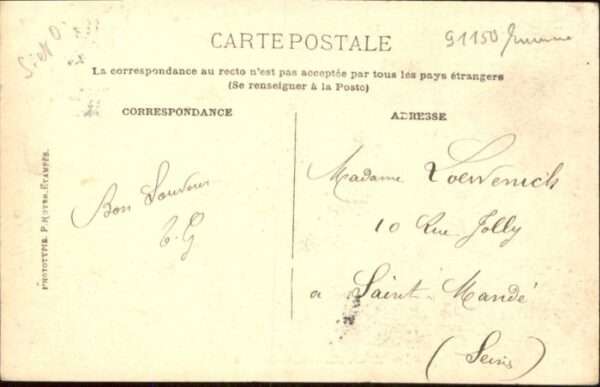 S et O
91150
CARTE POSTALE
La correspondance au recto n'est pas acceptée par tous les pays étrangers
(Se renseigner à la Poste)
CORRESPONDANCE
ADRESSE
Bon Souvenir
Madame Loewenich
10 Rue Jolly
a Saint-Mandé
(Seine)
PHOTOTYPIE, ÉTAMPES.